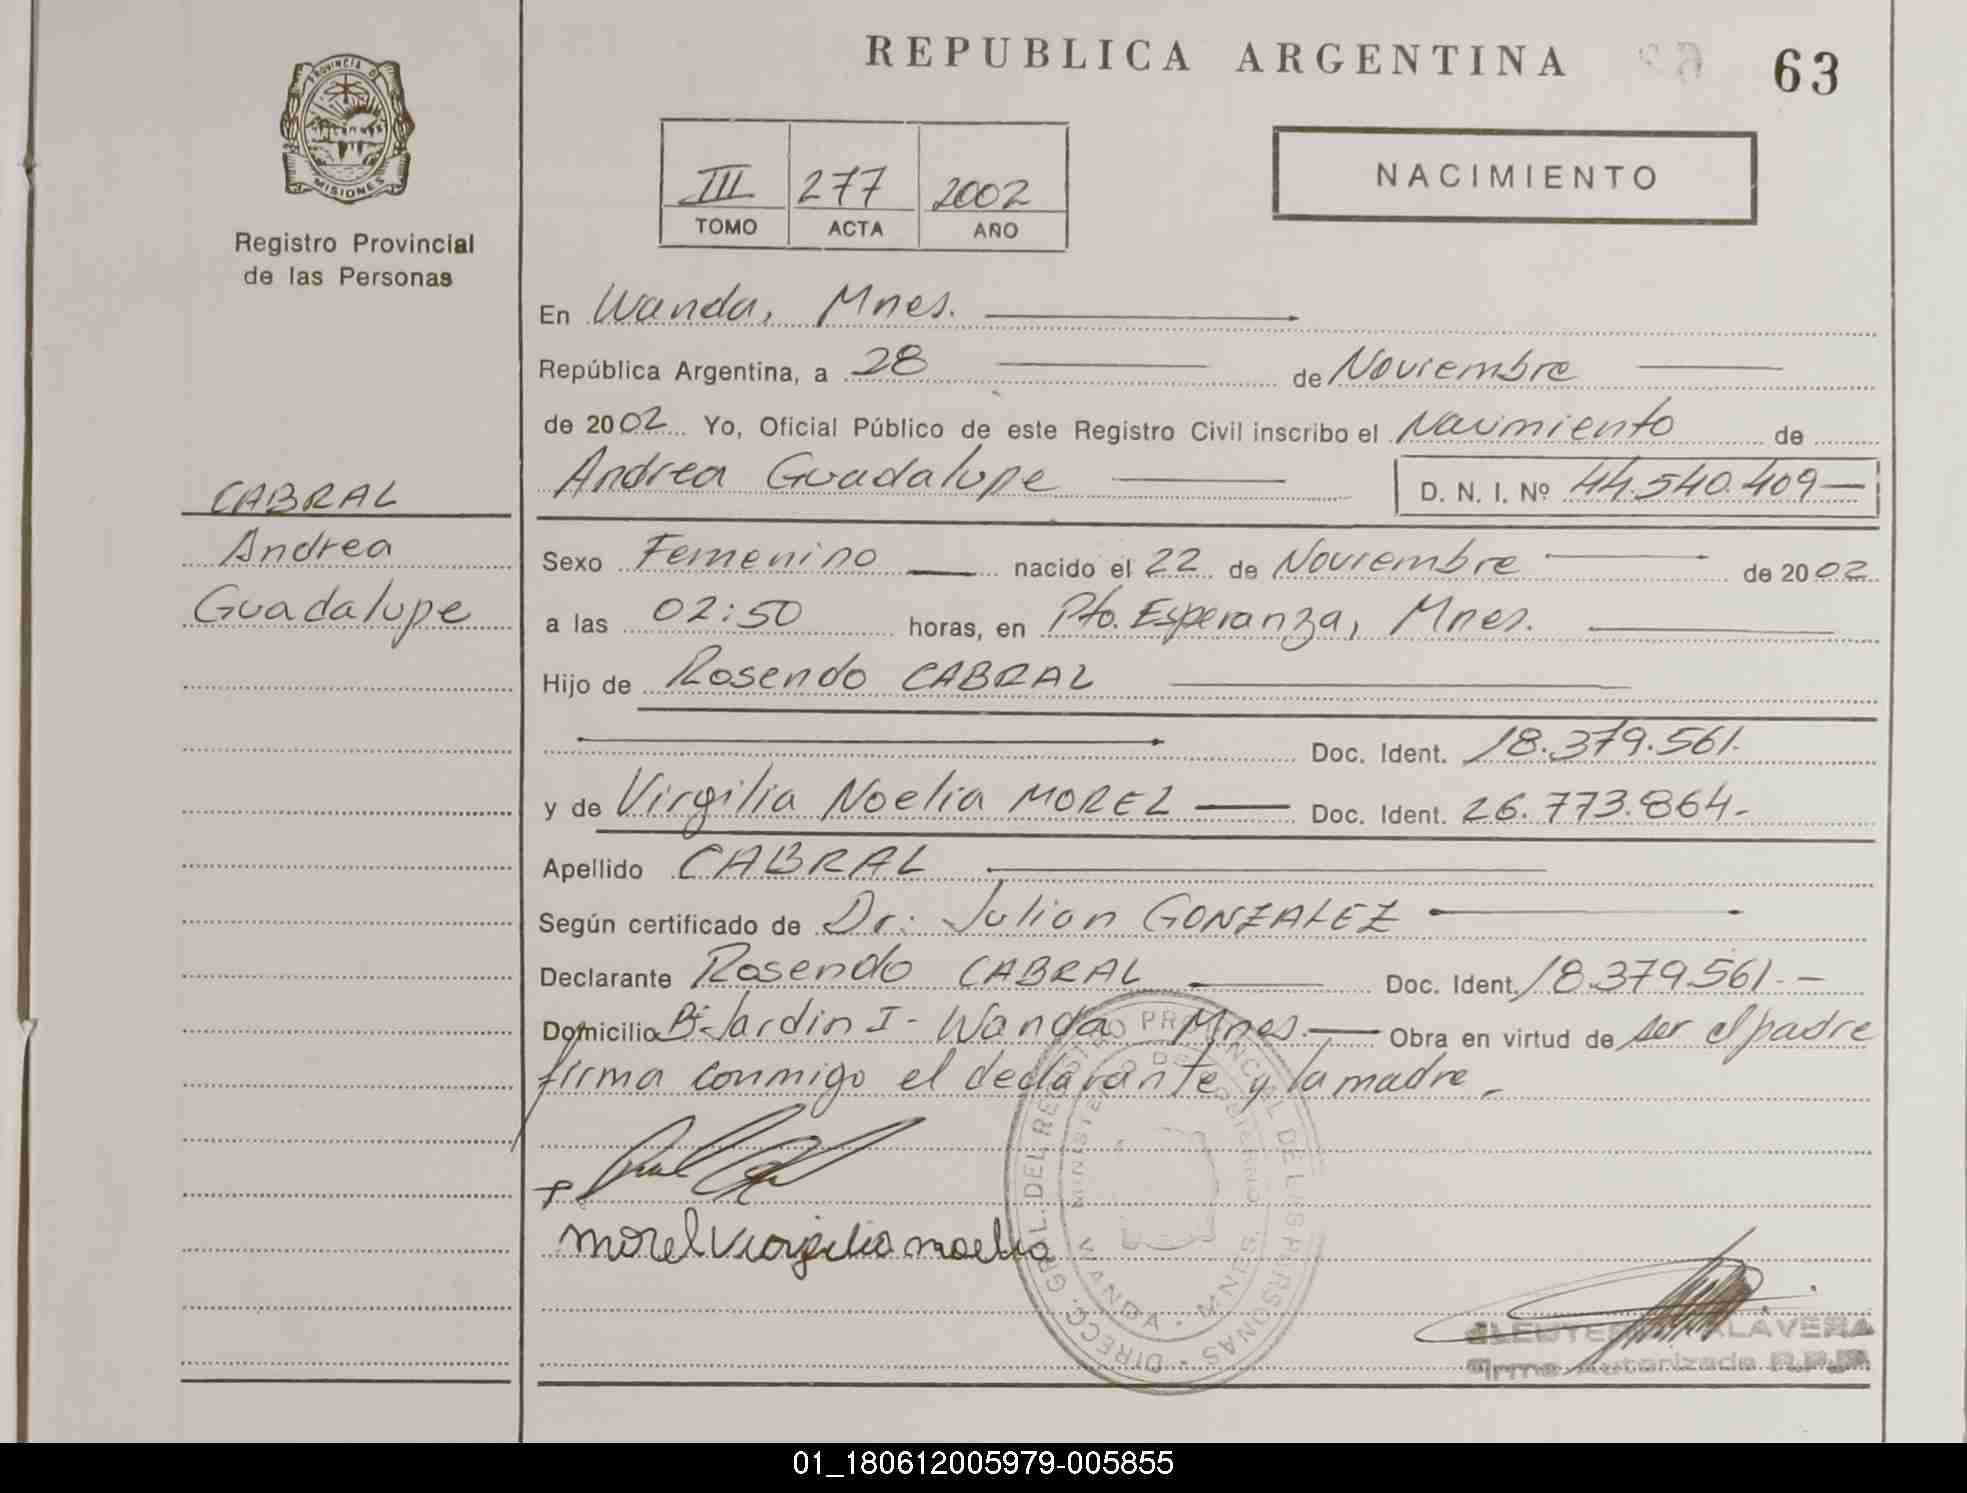 REPUBLICA ARGENTINA
63
PROVINCIA D
MISIONES
Registro Provincial
de las Personas
III 277 2002
TOMO ACTA AÑO
NACIMIENTO
En Wanda, Mnes.
República Argentina, a 28 de Noviembre
de 2002 Yo, Oficial Público de este Registro Civil inscribo el Nacimiento de
Andrea Guadalupe D. N. I. Nº 44.540.409
CABRAL
Andrea
Guadalupe
Sexo Femenino nacido el 22 de Noviembre de 2002
a las 02:50 horas, en Pto. Esperanza, Mnes.
Hijo de Rosendo CABRAL
Doc. Ident. 18.379.561.
y de Virgilia Noelia MOREL Doc. Ident. 26.773.864-
Apellido CABRAL
Según certificado de Dr. Julian GONZALEZ
Declarante Rosendo CABRAL Doc. Ident. 18.379.561.-
Domicilio Bº Jardin I - Wanda Mnes. Obra en virtud de ser el padre
firma conmigo el declarante y la madre.
morel virgilia noelia
DIRECC. GRAL. DEL REGISTRO PROVINCIAL DE LAS PERSONAS
MINISTERIO DE GOBIERNO
WANDA - MNES.
TALAVERA
Firma Autorizada R.P.P.
01_180612005979-005855